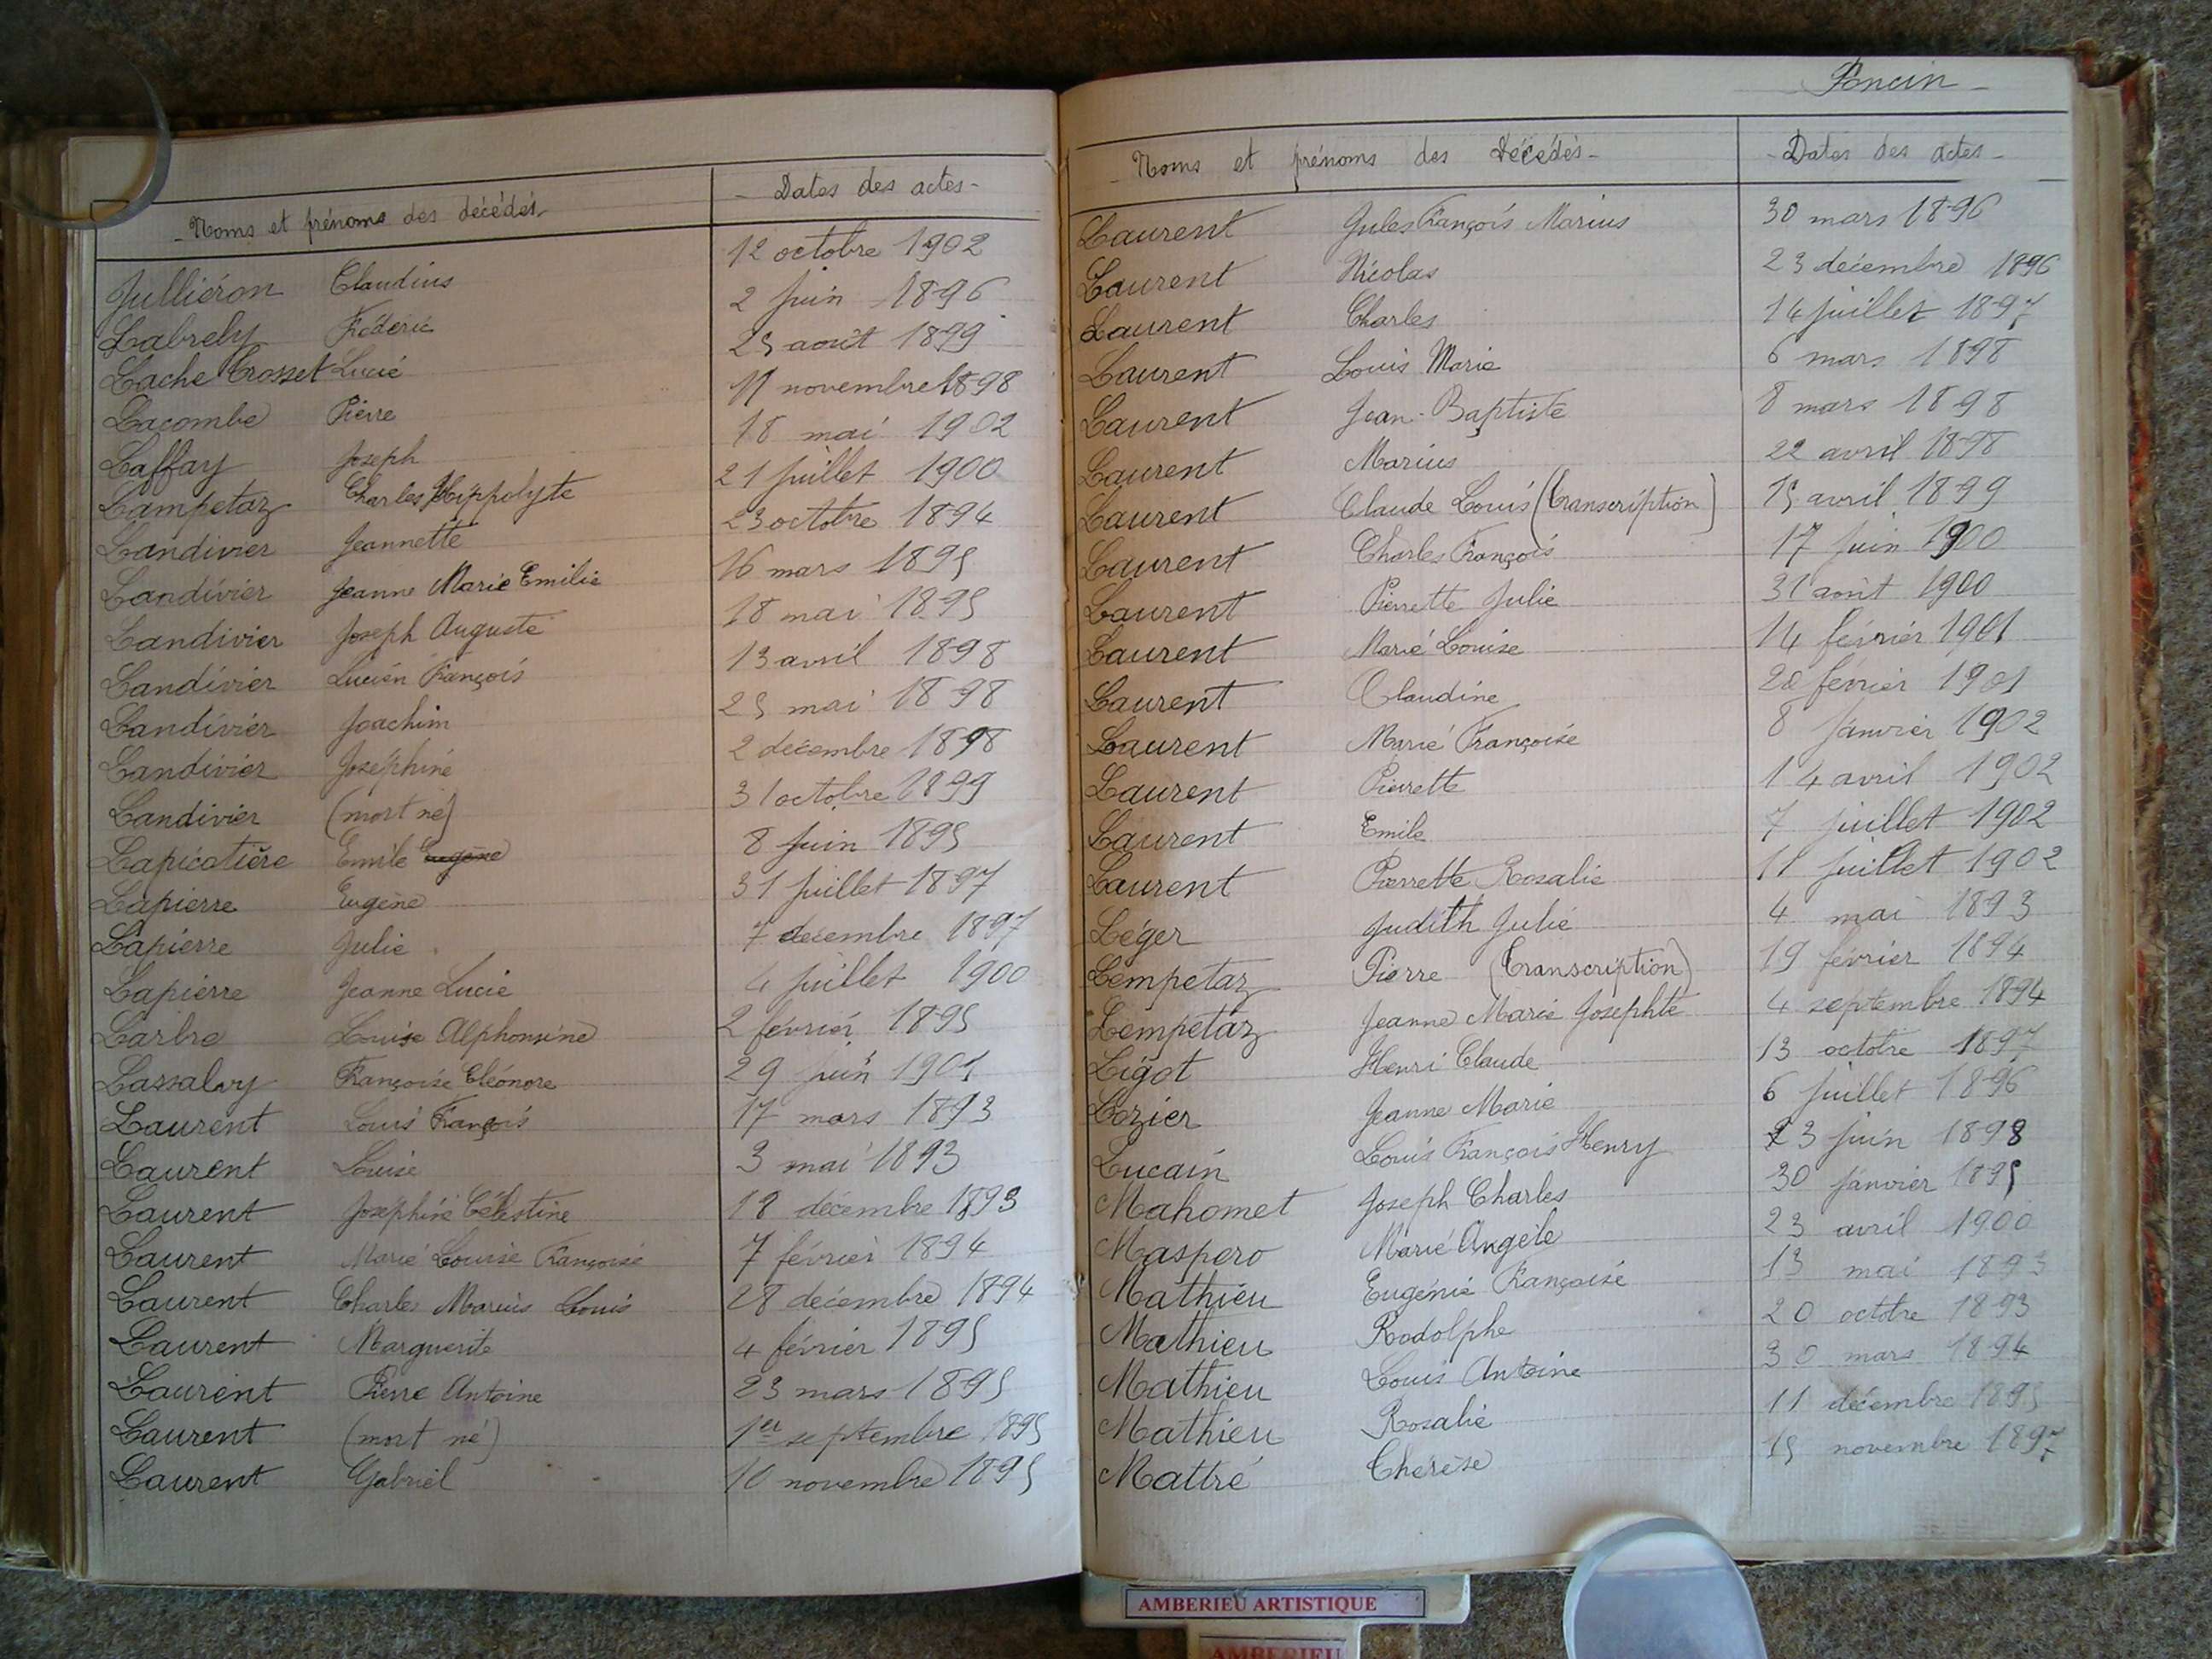 - Noms et prénoms des décédés - - Dates des actes -
Julliéron Claudius 12 octobre 1902
Labrely Fréderic 2 juin 1896
Lache Crosset Lucie 25 août 1899
Lacombe Pierre 11 novembre 1898
Laffay Joseph 18 mai 1902
Lampetaz Charles Hippolyte 21 juillet 1900
Landivier Jeannette 23 octobre 1894
Landivier Jeanne Marie Emilie 16 mars 1895
Landivier Joseph Auguste 18 mai 1895
Landivier Lucien François 13 avril 1898
Landivier Joachim 25 mai 1898
Landivier Joséphine 2 décembre 1898
Landivier (mort né) 31 octobre 1899
Lapicotière Emile Eugène 8 juin 1895
Lapierre Eugène 31 juillet 1897
Lapierre Julie 7 décembre 1897
Lapierre Jeanne Lucie 4 juillet 1900
Larbre Louise Alphonsine 2 février 1895
Lassalvy Françoise Eléonore 29 juin 1901
Laurent Louis François 17 mars 1893
Laurent Louise 3 mai 1893
Laurent Joséphine Célestine 18 décembre 1893
Laurent Marie Louise Françoise 7 février 1894
Laurent Charles Marius Louis 28 décembre 1894
Laurent Marguerite 4 février 1895
Laurent Pierre Antoine 23 mars 1895
Laurent (mort né) 1er septembre 1895
Laurent Gabriel 10 novembre 1895
Poncin -
- Noms et prénoms des décédés - - Dates des actes -
Laurent Jules François Marius 30 mars 1896
Laurent Nicolas 23 décembre 1896
Laurent Charles 14 juillet 1897
Laurent Louis Marie 6 mars 1898
Laurent Jean-Baptiste 8 mars 1898
Laurent Marius 22 avril 1898
Laurent Claude Louis (Transcription) 15 avril 1899
Laurent Charles François 17 juin 1900
Laurent Pierrette Julie 31 août 1900
Laurent Marie Louise 14 février 1901
Laurent Claudine 20 février 1901
Laurent Marie Françoise 8 janvier 1902
Laurent Pierrette 14 avril 1902
Laurent Emile 7 juillet 1902
Laurent Pierrette Rosalie 11 juillet 1902
Léger Judith Julie 4 mai 1893
Lempetaz Pierre (Transcription) 19 février 1894
Lempetaz Jeanne Marie Josephte 4 septembre 1894
Ligot Henri Claude 13 octobre 1897
Lozier Jeanne Marie 6 juillet 1896
Lucain Louis François Henry 23 juin 1898
Mahomet Joseph Charles 30 janvier 1895
Maspero Marie Angèle 23 avril 1900
Mathieu Eugénie Françoise 13 mai 1893
Mathieu Rodolphe 20 octobre 1893
Mathieu Louis Antoine 30 mars 1894
Mathieu Rosalie 11 décembre 1895
Mattré Thérèse 15 novembre 1897
AMBERIEU ARTISTIQUE
AMBERIEU